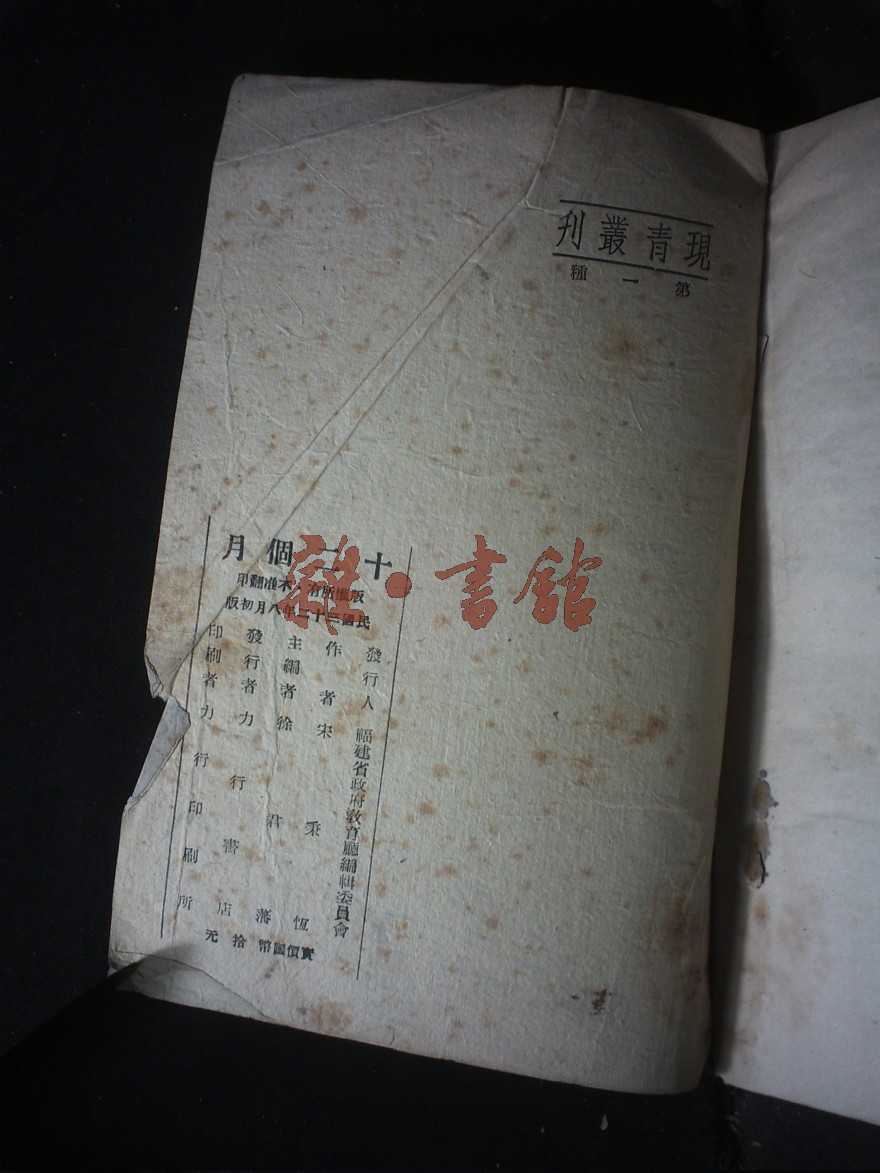 現青叢刋
第一種
十二個月
版權所有・不准翻印
民國三十三年八月初版
發行人 福建省政府教育廳編輯委員會
作者 宋秉恆
主編者 徐君藩
發行者 力行書店
印刷者 力行印刷所
實價國幣拾元
雜・書館